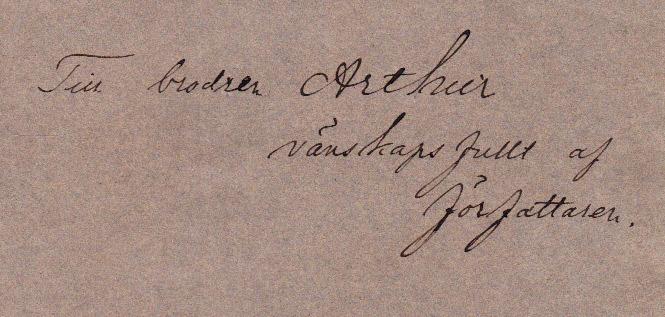 Till brodren Arthur
vänskapsfullt af
författaren.